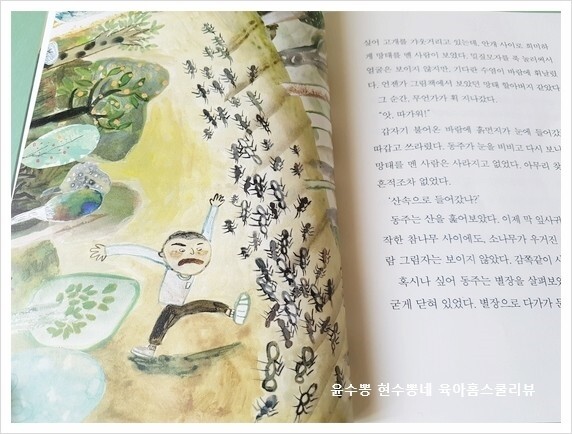 싶어 고개를 갸웃거리고 있는데, 안개 사이로 희미하
게 망태를 멘 사람이 보였다. 밀짚모자를 푹 눌러써서
얼굴은 보이지 않지만, 기다란 수염이 바람에 휘날렸
다. 언젠가 그림책에서 보았던 망태 할아버지 같았다.
그 순간, 무언가가 휙 지나갔다.
"앗, 따가워!"
갑자기 불어온 바람에 흙먼지가 눈에 들어갔
따갑고 쓰라렸다. 동주가 눈을 비비고 다시 보니
망태를 멘 사람은 사라지고 없었다. 아무리 찾
흔적조차 없었다.
'산속으로 들어갔나?'
동주는 산을 훑어보았다. 이제 막 잎사귀
작한 참나무 사이에도, 소나무가 우거진
람 그림자는 보이지 않았다. 감쪽같이 사
혹시나 싶어 동주는 별장을 살펴보았
굳게 닫혀 있었다. 별장으로 다가가 문
윤수뽕 현수뽕네 육아홈스쿨리뷰